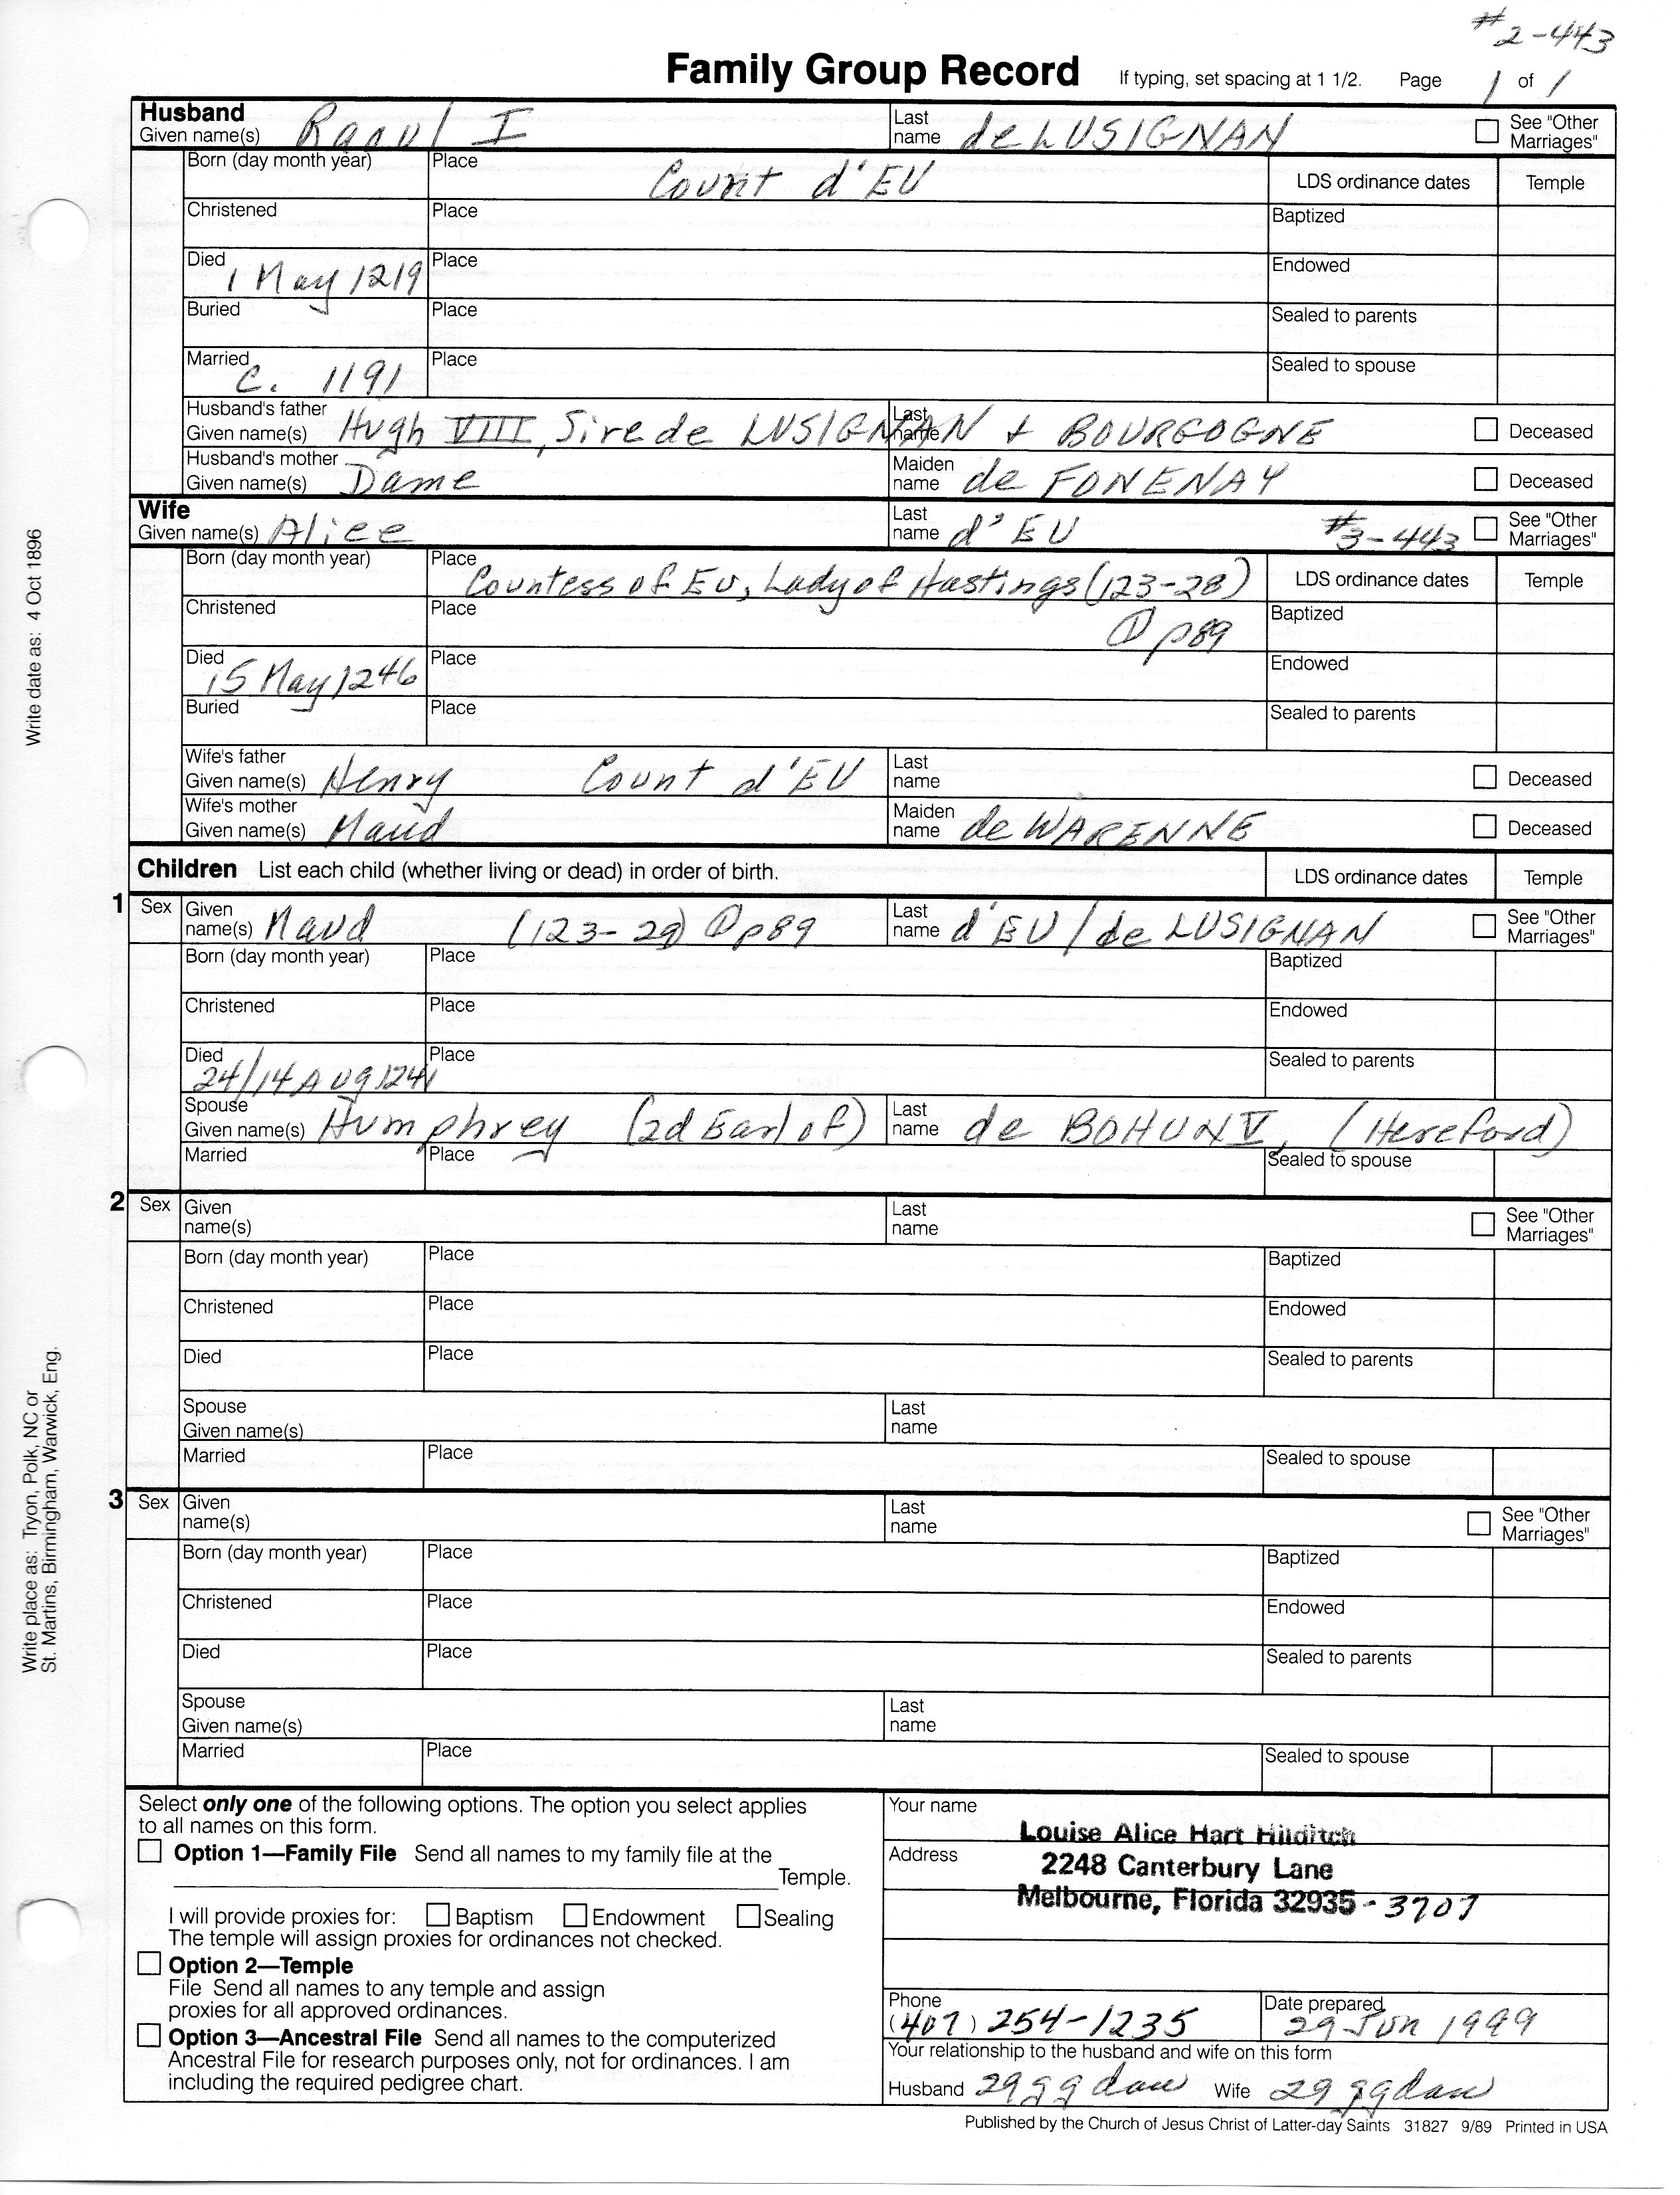 #2-443
Family Group Record If typing, set spacing at 1 1/2. Page 1 of 1
Husband
Given name(s) Raoul I Last name de LUSIGNAN See "Other Marriages"
Born (day month year) Place Count d'EU LDS ordinance dates Temple
Christened Place Baptized
Died 1 May 1219 Place Endowed
Buried Place Sealed to parents
Married c. 1191 Place Sealed to spouse
Husband's father Given name(s) Hugh VIII, Sire de LUSIGNAN + BOURGOGNE Last name Deceased
Husband's mother Given name(s) Dame Maiden name de FONENAY Deceased
Wife
Given name(s) Alice Last name d'EU #3-443 See "Other Marriages"
Born (day month year) Place Countess of Eu, Lady of Hastings (123-28) LDS ordinance dates Temple
Christened Place ① p89 Baptized
Died 15 May 1246 Place Endowed
Buried Place Sealed to parents
Wife's father Given name(s) Henry Count d'EU Last name Deceased
Wife's mother Given name(s) Maud Maiden name de WARENNE Deceased
Children List each child (whether living or dead) in order of birth. LDS ordinance dates Temple
1 Sex Given name(s) Maud (123-29) ① p89 Last name d'EU/de LUSIGNAN See "Other Marriages"
Born (day month year) Place Baptized
Christened Place Endowed
Died 24/14 AUG 1241 Place Sealed to parents
Spouse Given name(s) Humphrey (2d Earl of) Last name de BOHUN V, (Hereford)
Married Place Sealed to spouse
2 Sex Given name(s) Last name See "Other Marriages"
Born (day month year) Place Baptized
Christened Place Endowed
Died Place Sealed to parents
Spouse Given name(s) Last name
Married Place Sealed to spouse
3 Sex Given name(s) Last name See "Other Marriages"
Born (day month year) Place Baptized
Christened Place Endowed
Died Place Sealed to parents
Spouse Given name(s) Last name
Married Place Sealed to spouse
Select only one of the following options. The option you select applies
to all names on this form.
Option 1—Family File Send all names to my family file at the
Temple.
I will provide proxies for: Baptism Endowment Sealing
The temple will assign proxies for ordinances not checked.
Option 2—Temple
File Send all names to any temple and assign
proxies for all approved ordinances.
Option 3—Ancestral File Send all names to the computerized
Ancestral File for research purposes only, not for ordinances. I am
including the required pedigree chart.
Your name Louise Alice Hart Hilditch
Address 2248 Canterbury Lane
Melbourne, Florida 32935-3707
Phone (407) 254-1235 Date prepared 29 Jun 1999
Your relationship to the husband and wife on this form
Husband 29ggdau Wife 29ggdau
Published by the Church of Jesus Christ of Latter-day Saints 31827 9/89 Printed in USA
Write date as: 4 Oct 1896
Write place as: Tryon, Polk, NC or
St. Martins, Birmingham, Warwick, Eng.